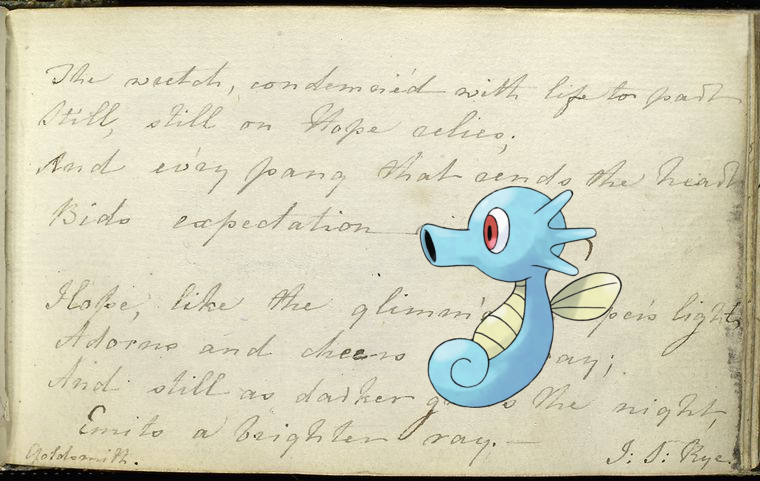 The wretch, condemnéd with life to part
Still, still on Hope relies;
And ev'ry pang that rends the heart
Bids expectation
Hope, like the glimm' light,
Adorns and cheers
And still as darker the night,
Emits a brighter ray. —
Goldsmith. J: S: Rye.